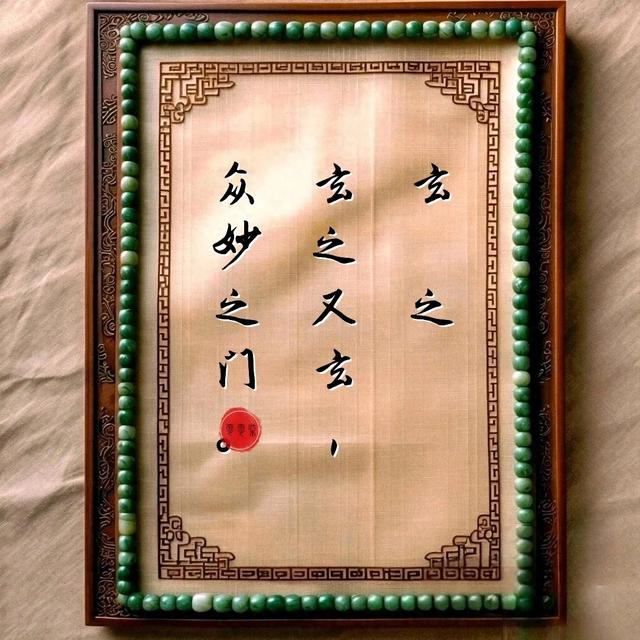 玄之
玄之又玄，
众妙之门。